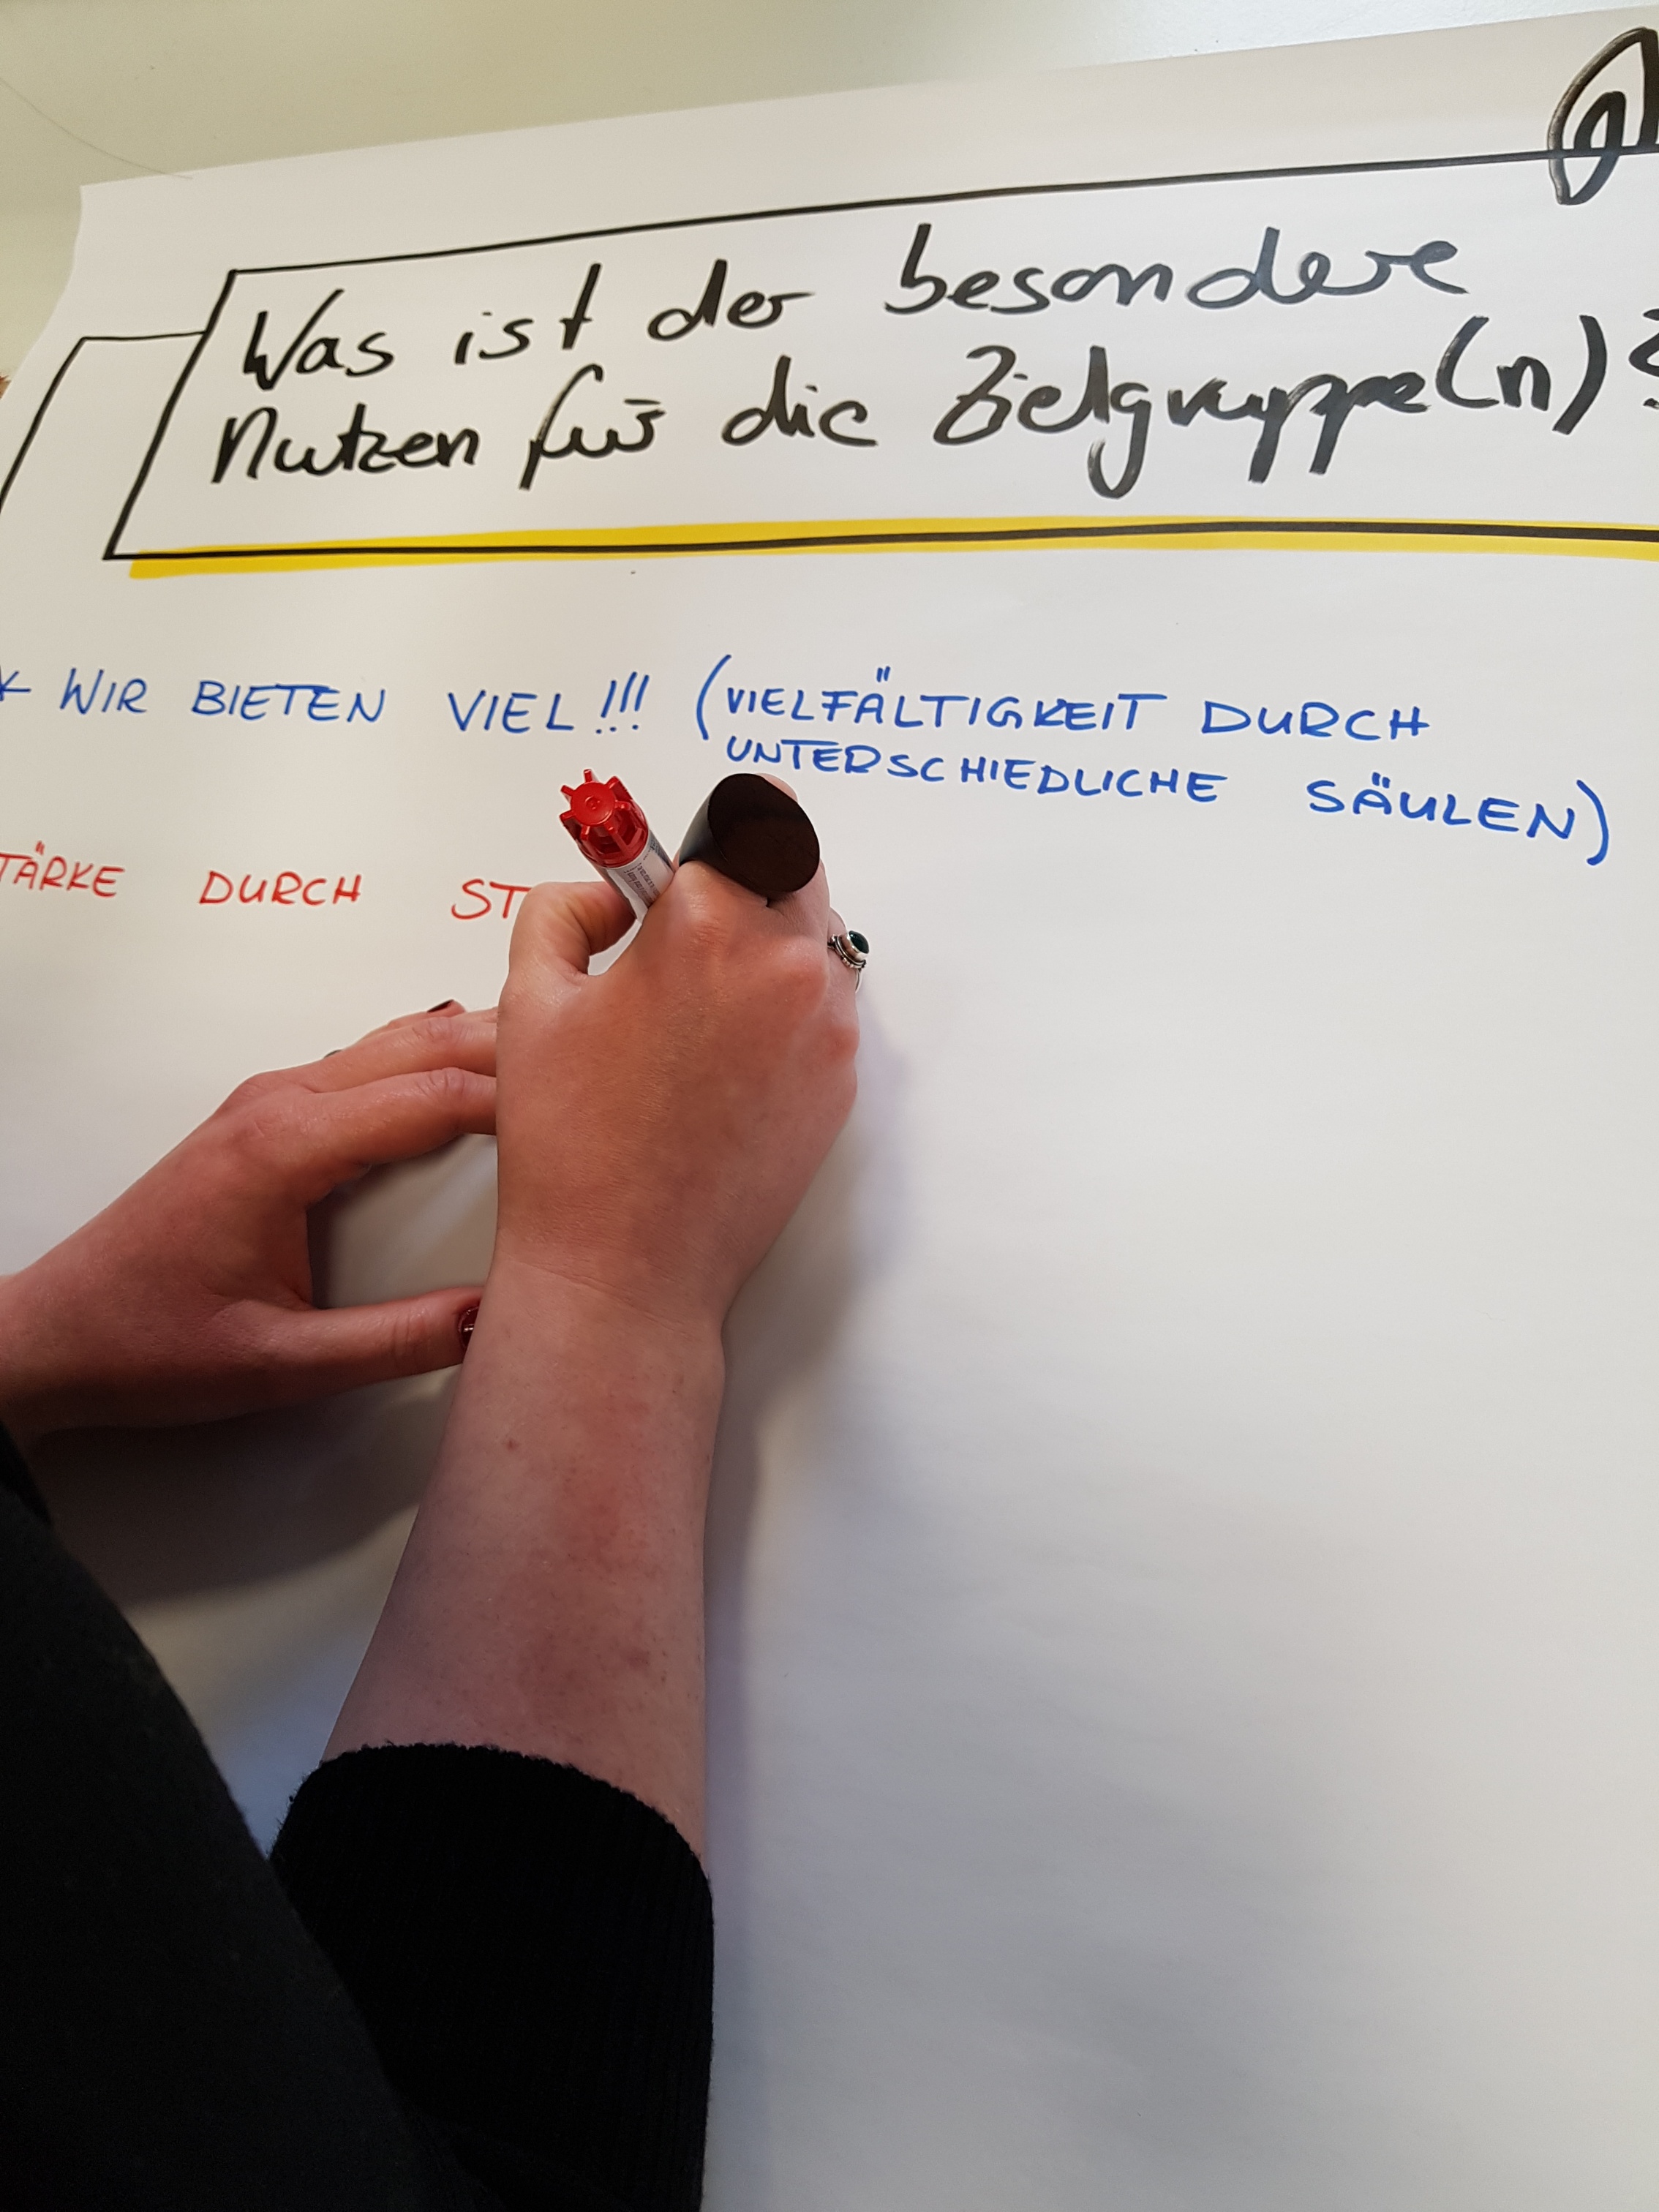 Was ist der besondere
Nutzen für die Zielgruppe(n)?
WIR BIETEN VIEL!!! (VIELFÄLTIGKEIT DURCH
UNTERSCHIEDLICHE SÄULEN)
TÄRKE DURCH ST